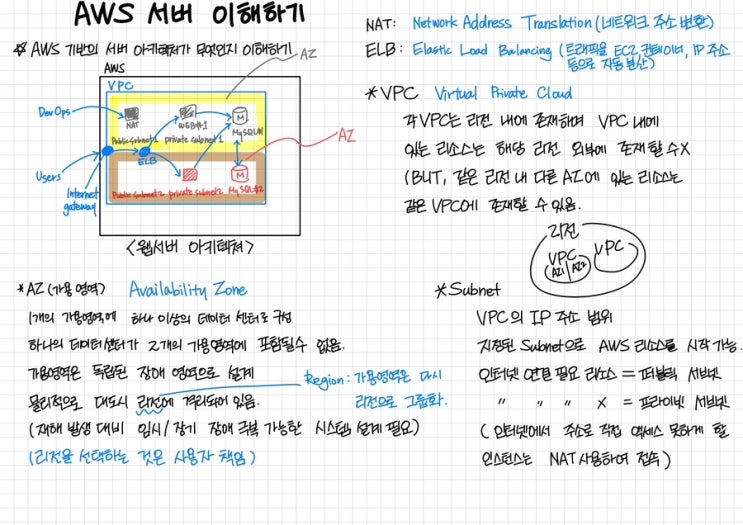 AWS 서버 이해하기
☆ AWS 기반의 서버 아키텍쳐가 무엇인지 이해하기
AZ
AWS
VPC
DevOps
NAT
WEB#1
M
MySQL#1
Public subnet1
private subnet1
AZ
ELB
Users
Internet gateway
M
Public subnet2
private subnet2
MySQL#2
<웹서버 아키텍쳐>
NAT: Network Address Translation (네트워크 주소 변환)
ELB: Elastic Load Balancing (트래픽을 EC2, 컨테이너, IP 주소
등으로 자동 분산)
*VPC Virtual Private Cloud
각 VPC는 리전 내에 존재하며 VPC 내에
있는 리소스는 해당 리전 외부에 존재할 수 X
(BUT, 같은 리전 내 다른 AZ에 있는 리소스는
같은 VPC에 존재할 수 있음.
리전
VPC
AZ1
AZ2
VPC
*AZ (가용 영역) Availability Zone
1개의 가용영역에 하나 이상의 데이터 센터로 구성
하나의 데이터센터가 2개의 가용영역에 포함될수 없음.
가용영역은 독립된 장애 영역으로 설계
물리적으로 대도시 리전에 격리되어 있음.
Region: 가용영역은 다시
리전으로 그룹화.
(재해 발생 대비 임시/장기 장애 극복 가능한 시스템 설계 필요)
(리전을 선택하는 것은 사용자 책임)
*Subnet
VPC의 IP 주소 범위
지정된 Subnet으로 AWS 리소스를 시작 가능.
인터넷 연결 필요 리소스 = 퍼블릭 서브넷
〃 〃 〃 X = 프라이빗 서브넷
(인터넷에서 주소로 직접 액세스 못하게 할
인스턴스는 NAT 사용하여 접속)